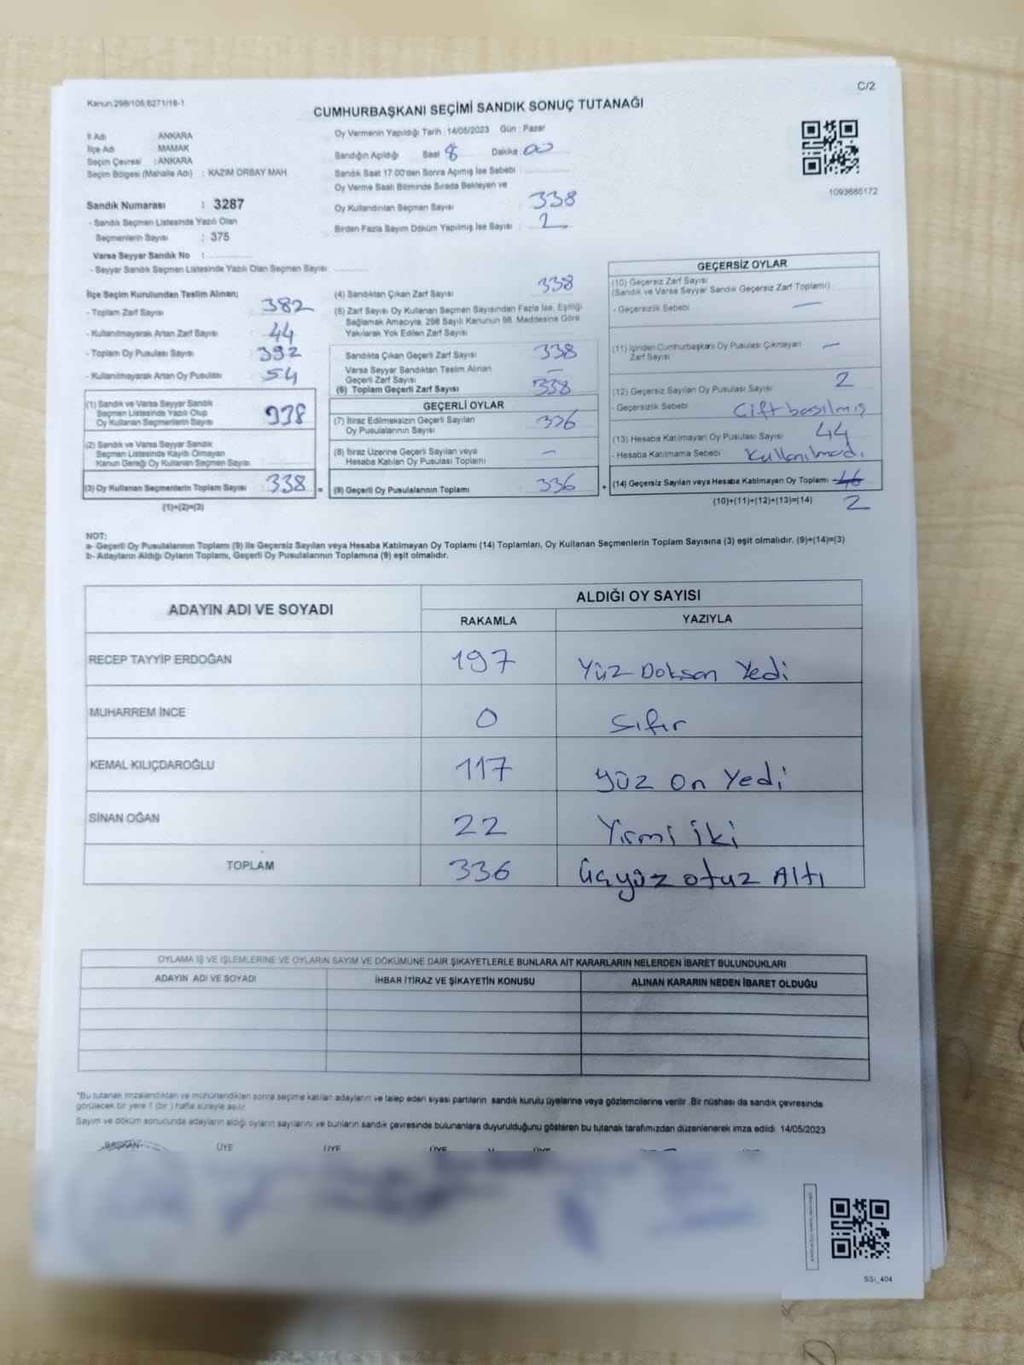 Kanun:298/105,6271/18-1
C/2
CUMHURBAŞKANI SEÇİMİ SANDIK SONUÇ TUTANAĞI
İl Adı : ANKARA
İlçe Adı : MAMAK
Seçim Çevresi : ANKARA
Seçim Bölgesi (Mahalle Adı) : KAZIM ORBAY MAH
Sandık Numarası : 3287
- Sandık Seçmen Listesinde Yazılı Olan
Seçmenlerin Sayısı : 375
Varsa Seyyar Sandık No :
- Seyyar Sandık Seçmen Listesinde Yazılı Olan Seçmen Sayısı
Oy Vermenin Yapıldığı Tarih : 14/05/2023 Gün : Pazar
Sandığın Açıldığı Saat 8 Dakika 00
Sandık Saat 17.00'den Sonra Açılmış İse Sebebi :
Oy Verme Saati Bitiminde Sırada Bekleyen ve
Oy Kullandırılan Seçmen Sayısı 338
Birden Fazla Sayım Döküm Yapılmış İse Sayısı : 2
1093685172
İlçe Seçim Kurulundan Teslim Alınan;
- Toplam Zarf Sayısı 382
- Kullanılmayarak Artan Zarf Sayısı 44
- Toplam Oy Pusulası Sayısı 392
- Kullanılmayarak Artan Oy Pusulası 54
(1) Sandık ve Varsa Seyyar Sandık
Seçmen Listesinde Yazılı Olup
Oy Kullanan Seçmenlerin Sayısı 338
(2) Sandık ve Varsa Seyyar Sandık
Seçmen Listesinde Kayıtlı Olmayan
Kanun Gereği Oy Kullanan Seçmen Sayısı
(3) Oy Kullanan Seçmenlerin Toplam Sayısı 338 =
(1)+(2)=(3)
(4) Sandıktan Çıkan Zarf Sayısı 338
(5) Zarf Sayısı Oy Kullanan Seçmen Sayısından Fazla İse, Eşitliği
Sağlamak Amacıyla, 298 Sayılı Kanunun 98. Maddesine Göre
Yakılarak Yok Edilen Zarf Sayısı
Sandıkta Çıkan Geçerli Zarf Sayısı 338
Varsa Seyyar Sandıktan Teslim Alınan
Geçerli Zarf Sayısı –
(6) Toplam Geçerli Zarf Sayısı 338
GEÇERLİ OYLAR
(7) İtiraz Edilmeksizin Geçerli Sayılan
Oy Pusulalarının Sayısı 336
(8) İtiraz Üzerine Geçerli Sayılan veya
Hesaba Katılan Oy Pusulası Toplamı –
(9) Geçerli Oy Pusulalarının Toplamı 336 +
GEÇERSİZ OYLAR
(10) Geçersiz Zarf Sayısı
(Sandık ve Varsa Seyyar Sandık Geçersiz Zarf Toplamı)
- Geçersizlik Sebebi —
(11) İçinden Cumhurbaşkanı Oy Pusulası Çıkmayan
Zarf Sayısı –
(12) Geçersiz Sayılan Oy Pusulası Sayısı 2
- Geçersizlik Sebebi Çift basılmış
(13) Hesaba Katılmayan Oy Pusulası Sayısı 44
- Hesaba Katılmama Sebebi Kullanılmadı.
(14) Geçersiz Sayılan veya Hesaba Katılmayan Oy Toplamı 46
(10)+(11)+(12)+(13)=(14) 2
NOT:
a- Geçerli Oy Pusulalarının Toplamı (9) ile Geçersiz Sayılan veya Hesaba Katılmayan Oy Toplamı (14) Toplamları, Oy Kullanan Seçmenlerin Toplam Sayısına (3) eşit olmalıdır. (9)+(14)=(3)
b- Adayların Aldığı Oyların Toplamı, Geçerli Oy Pusulalarının Toplamına (9) eşit olmalıdır.
ADAYIN ADI VE SOYADI
ALDIĞI OY SAYISI
RAKAMLA YAZIYLA
RECEP TAYYİP ERDOĞAN 197 Yüz Doksan Yedi
MUHARREM İNCE 0 Sıfır
KEMAL KILIÇDAROĞLU 117 yüz on yedi
SİNAN OĞAN 22 Yirmi iki
TOPLAM 336 üçyüz otuz Altı
OYLAMA İŞ VE İŞLEMLERİNE VE OYLARIN SAYIM VE DÖKÜMÜNE DAİR ŞİKAYETLERLE BUNLARA AİT KARARLARIN NELERDEN İBARET BULUNDUKLARI
ADAYIN ADI VE SOYADI İHBAR İTİRAZ VE ŞİKAYETİN KONUSU ALINAN KARARIN NEDEN İBARET OLDUĞU
*Bu tutanak imzalandıktan ve mühürlendikten sonra seçime katılan adayların ve talep eden siyasi partilerin sandık kurulu üyelerine veya gözlemcilerine verilir. Bir nüshası da sandık çevresinde
görülecek bir yere 1 (bir) hafta süreyle asılır.
Sayım ve döküm sonucunda adayların aldığı oyların sayılarını ve bunların sandık çevresinde bulunanlara duyurulduğunu gösteren bu tutanak tarafımızdan düzenlenerek imza edildi. 14/05/2023
BAŞKAN ÜYE ÜYE ÜYE ÜYE
SSI_404